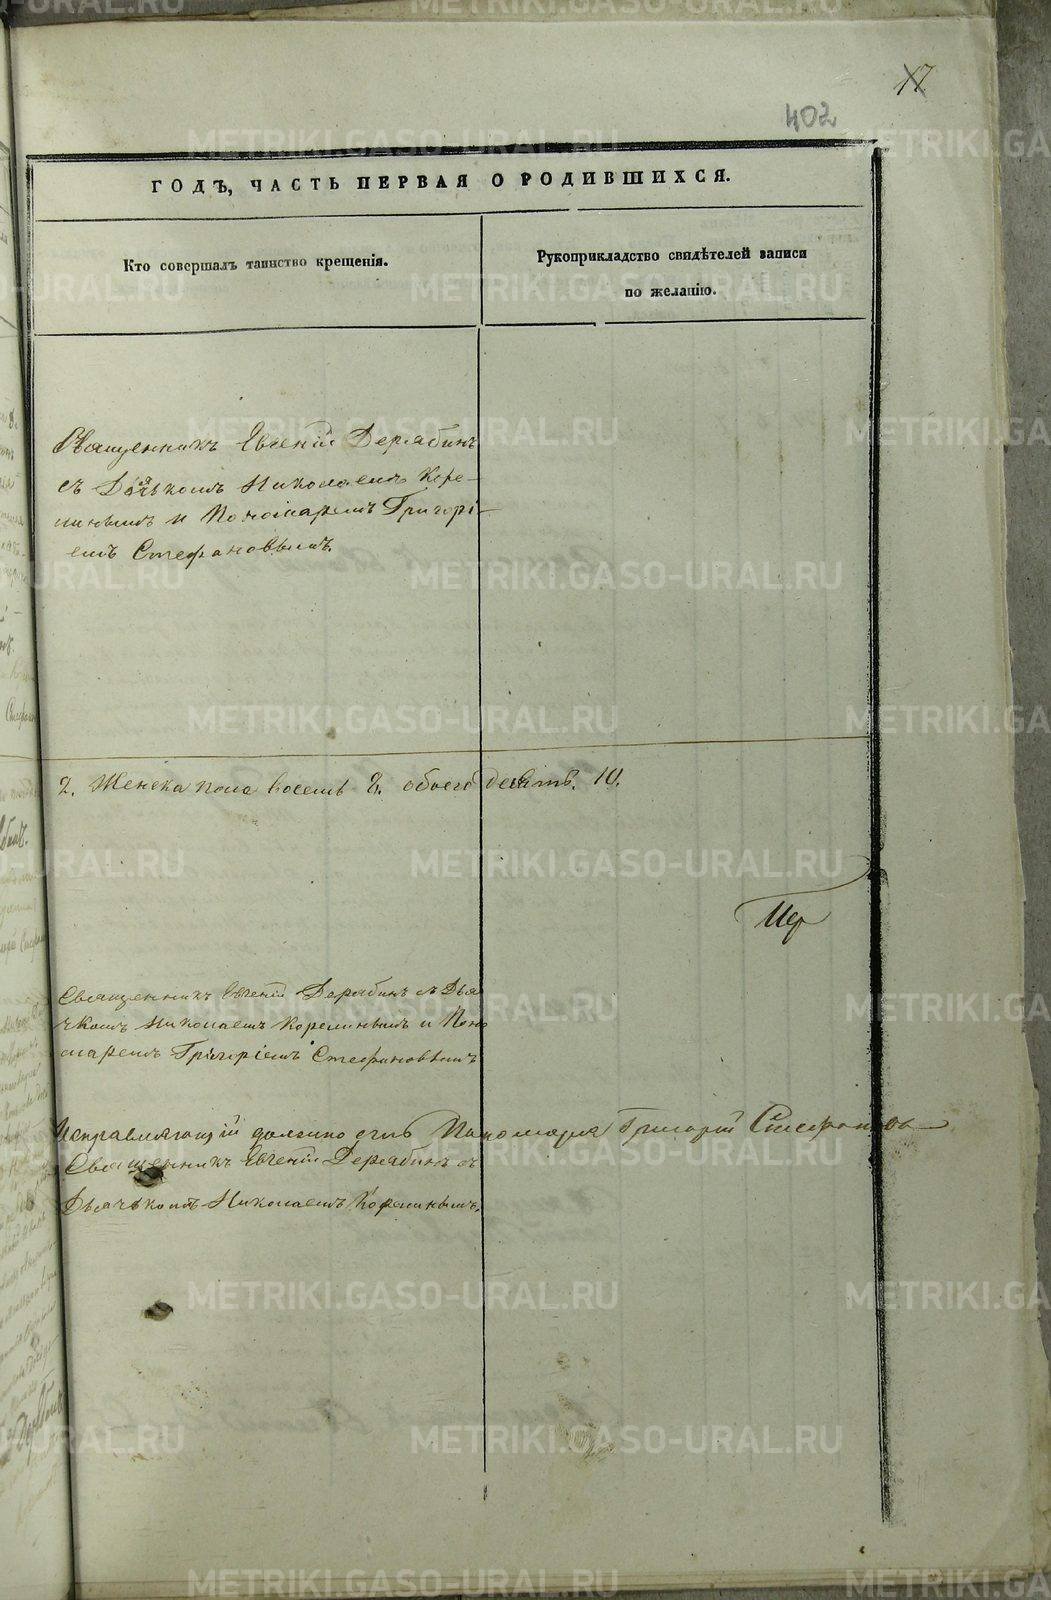 17
402
ГОДЪ, ЧАСТЬ ПЕРВАЯ О РОДИВШИХСЯ.
Кто совершалъ таинство крещенія.
Рукоприкладство свидѣтелей записи
по желанію.
Священникъ Евгеній Дерябинъ
съ Дьячькомъ Николаемъ Коре-
лінымъ и Пономаремъ Григорі-
емъ Стефановымъ.
2. Женска пола восемь 8. обоего десять. 10.
Священникъ Евгеній Дерябинъ съ Дья
чкомъ Николаемъ Корелинымъ и Поно
маремъ Григоріемъ Стефановымъ
Исправляющій должность Пономаря Григорій Стефановъ
Священникъ Евгеній Дерябинъ съ
Дьячькомъ Николаемъ Корелинымъ.
METRIKI.GASO-URAL.RU